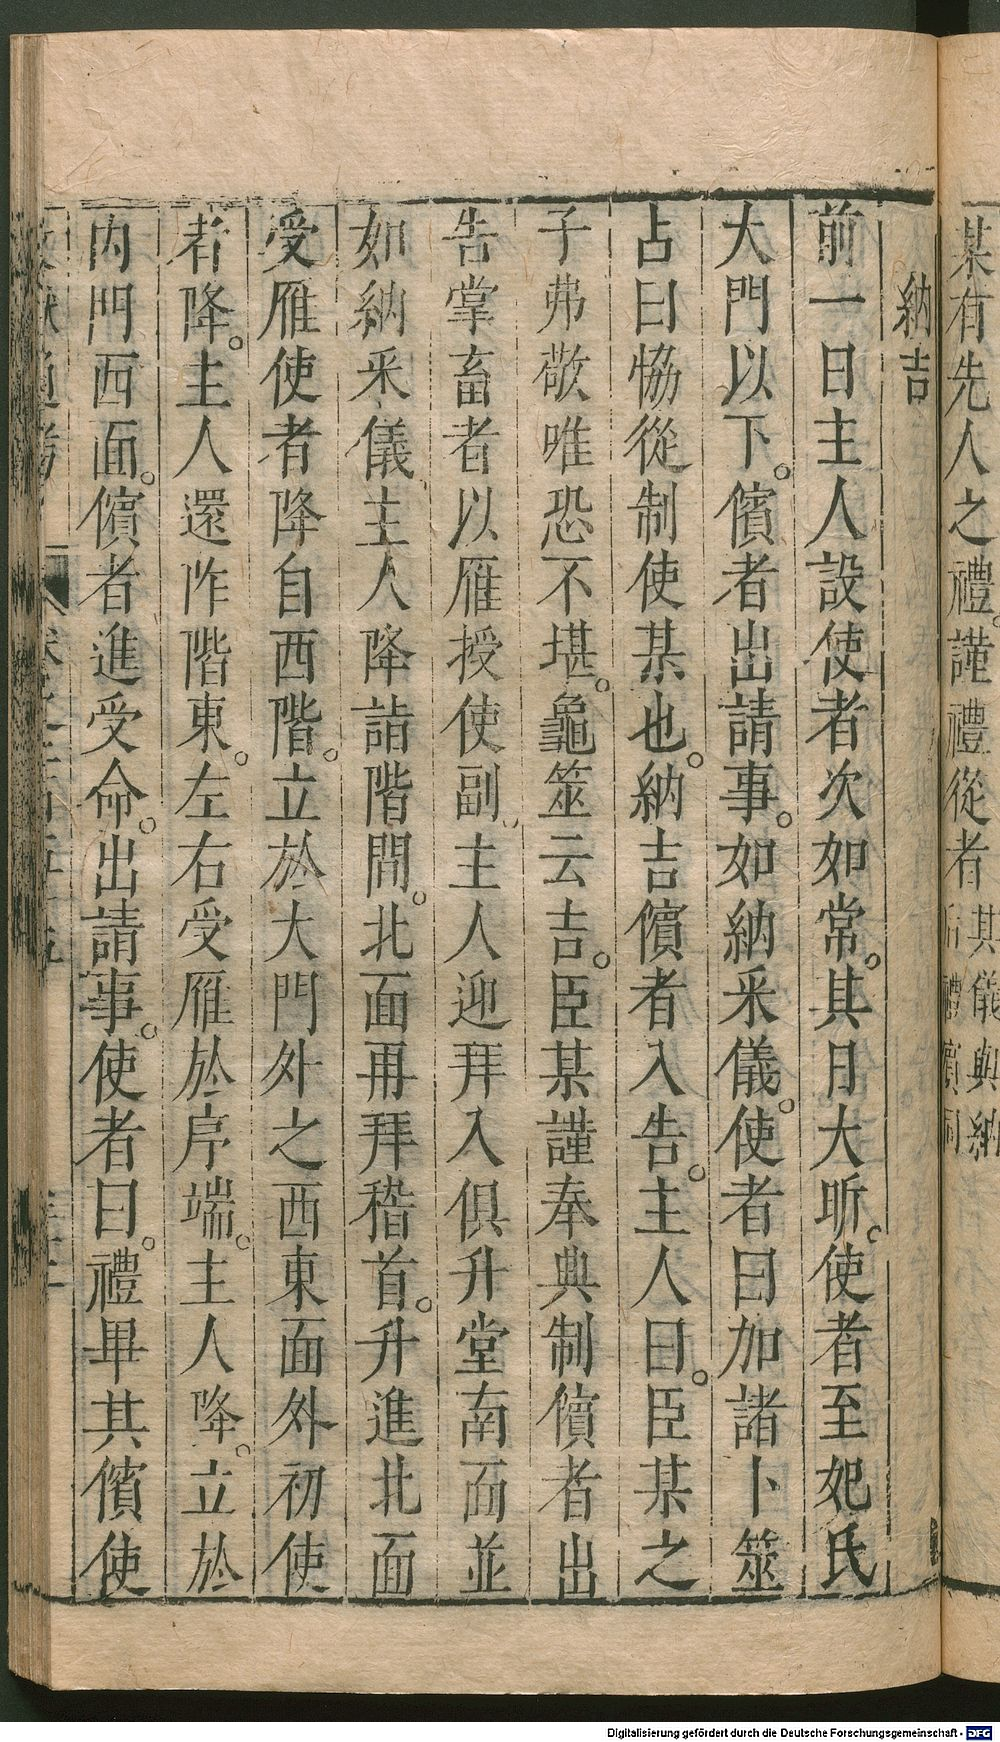 某有先人之禮。謹禮從者其儀與納
后禮儐同
納吉
前一日主人設使者次如常。其日大昕。使者至妃氏
大門以下。儐者出請事。如納采儀。使者曰加諸卜筮
占曰恊從制使某也。納吉儐者入告。主人曰。臣某之
子弗敬唯恐不堪。龜筮云吉。臣某謹奉典制儐者出
告掌畜者以雁授使副、主人迎拜入俱升堂南面並
如納采儀、主人降詣階間。北面再拜稽首。升進北面
受雁使者降自西階。立於大門外之西東面外初使
者降。主人還阼階東。左右受雁於序端。主人降。立於
內門西面。儐者進受命。出請事。使者曰。禮畢其儐使
Digitalisierung gefördert durch die Deutsche Forschungsgemeinschaft - DFG